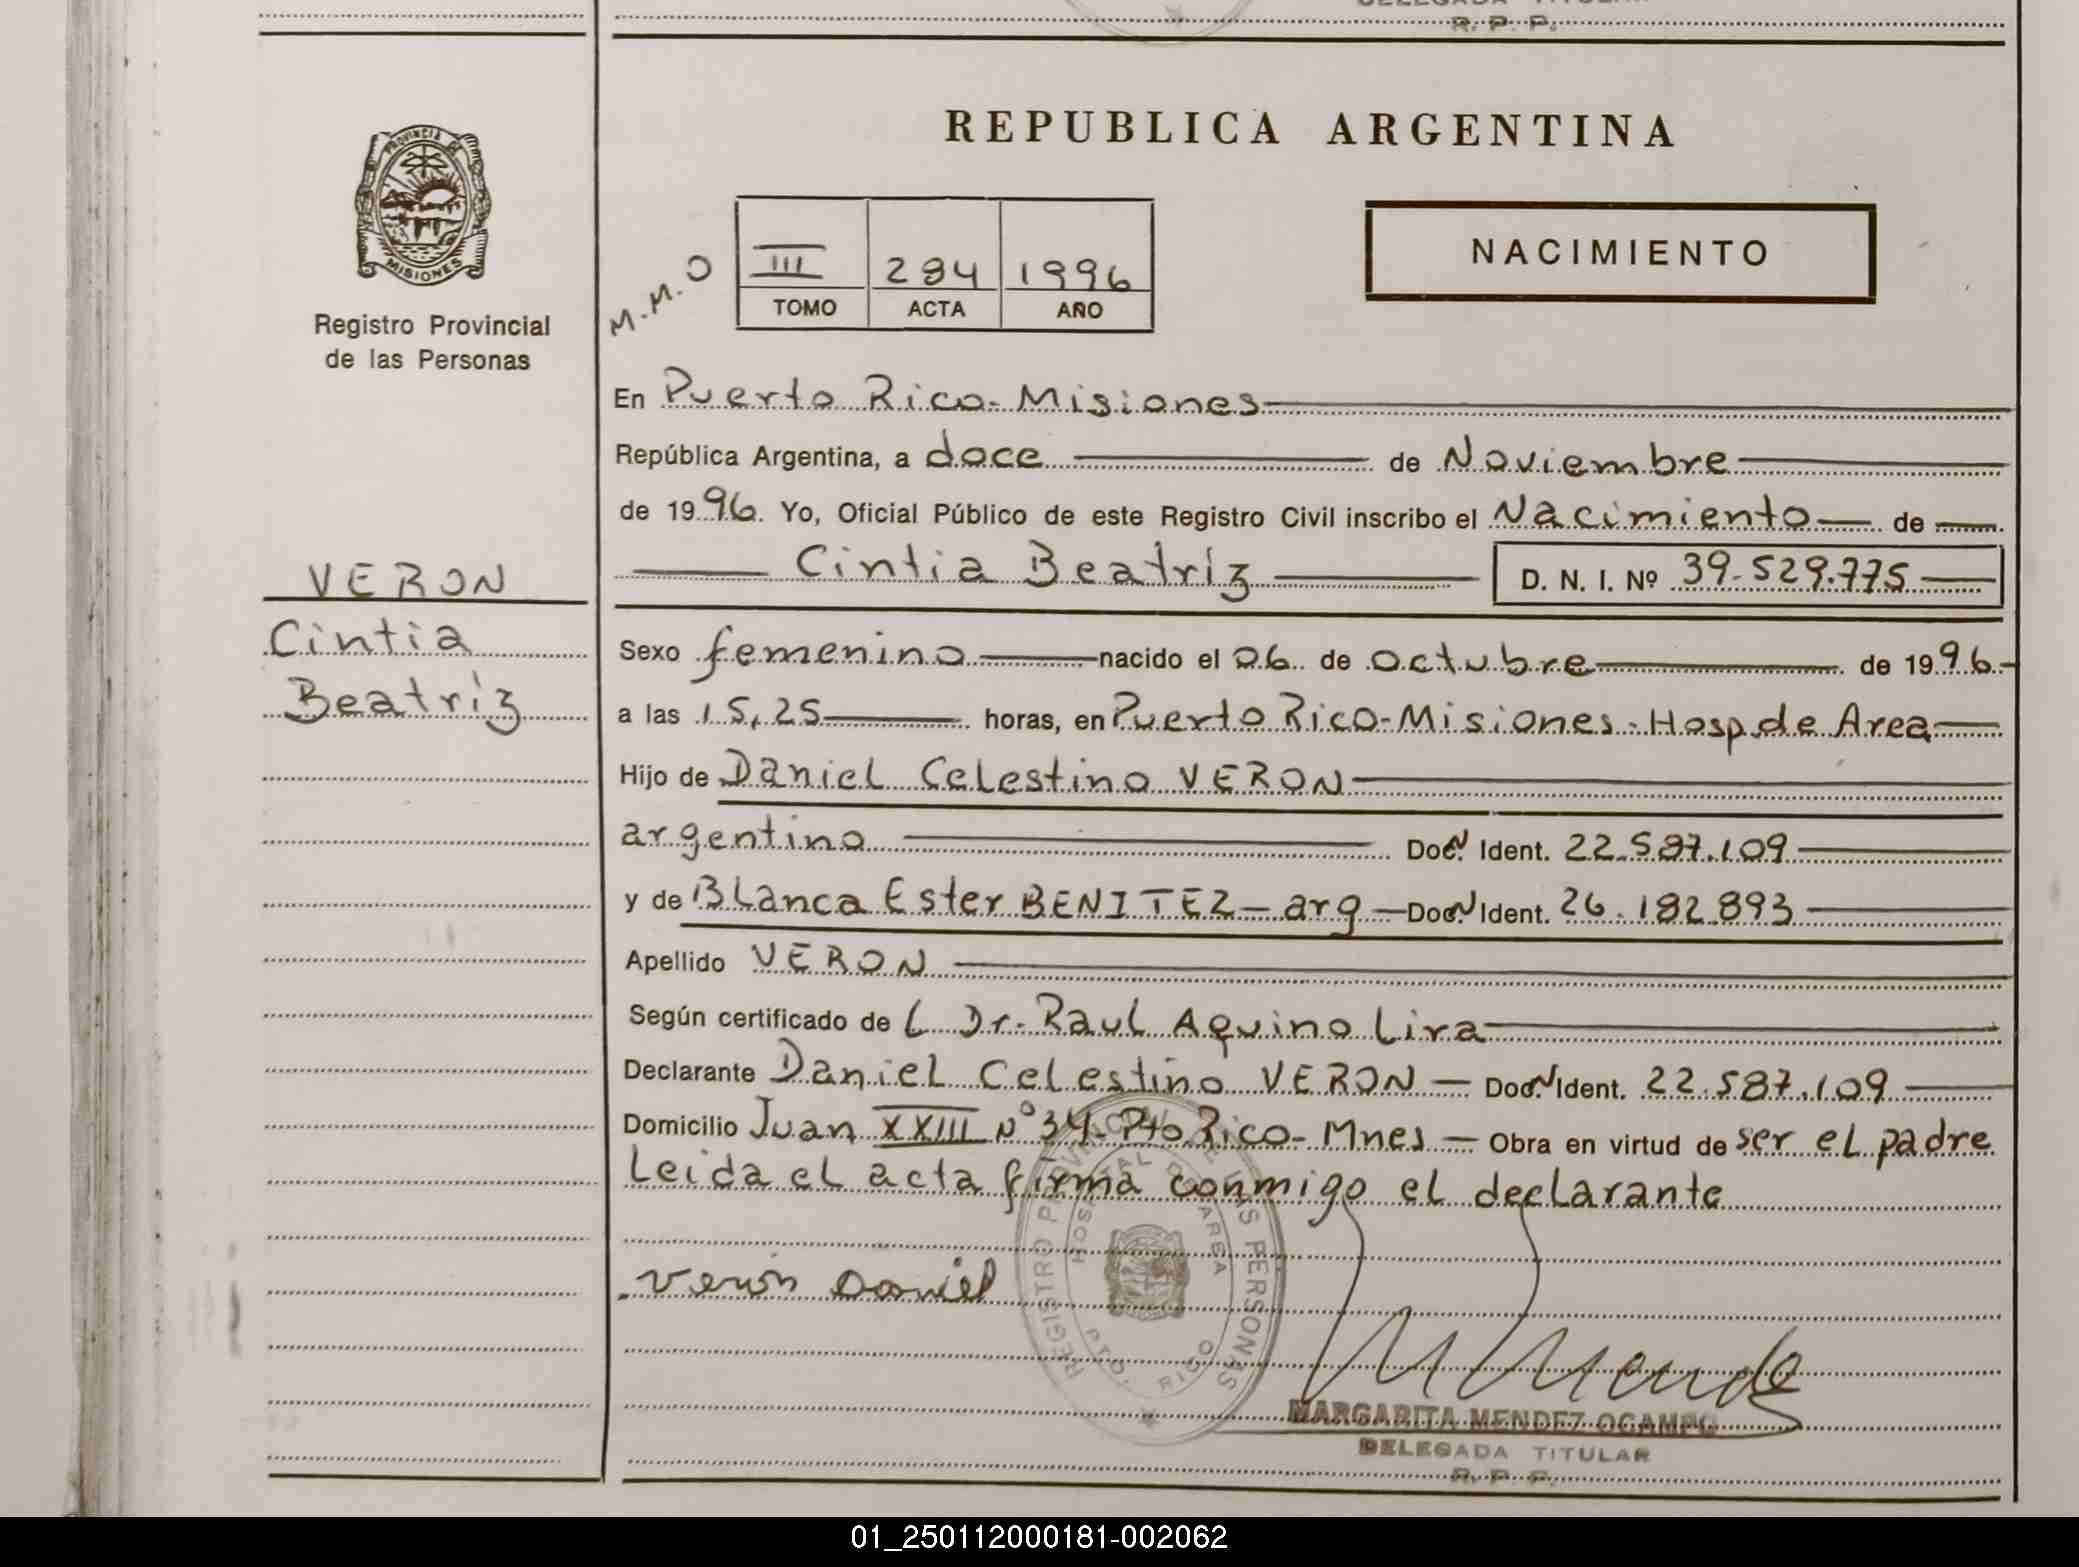 DELEGADA TITULAR
R. P. P.
PROVINCIA DE
MISIONES
Registro Provincial
de las Personas
REPUBLICA ARGENTINA
M.M.O
III 284 1996
TOMO ACTA AÑO
NACIMIENTO
En Puerto Rico - Misiones
República Argentina, a doce de Noviembre
de 1996. Yo, Oficial Público de este Registro Civil inscribo el Nacimiento de
Cintia Beatríz D. N. I. Nº 39.529.775
VERON
Cintia
Beatríz
Sexo femenino nacido el 06 de octubre de 1996
a las 15,25 horas, en Puerto Rico-Misiones-Hosp de Area
Hijo de Daniel Celestino VERON
argentino Doc. N Ident. 22.587.109
y de Blanca Ester BENITEZ - arg - Doc. N Ident. 26.182.893
Apellido VERON
Según certificado de L Dr. Raul Aquino Lira
Declarante Daniel Celestino VERON - Doc. N Ident. 22.587.109
Domicilio Juan XXIII Nº 34 - Pto Rico - Mnes - Obra en virtud de ser el padre
Leida el acta firma conmigo el declarante
Verón Daniel
REGISTRO PROVINCIAL DE LAS PERSONAS
HOSPITAL DE AREA
PTO. RICO
MARGARITA MENDEZ OCAMPO
DELEGADA TITULAR
R. P. P.
01_250112000181-002062